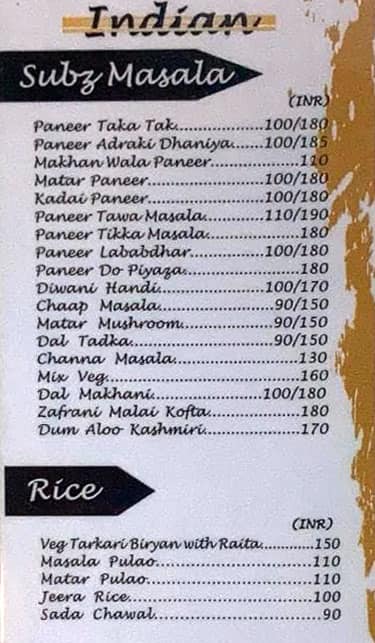 Indian
Subz Masala
(INR)
Paneer Taka Tak.....................100/180
Paneer Adraki Dhaniya......100/185
Makhan Wala Paneer..................110
Matar Paneer........................100/180
Kadai Paneer........................100/180
Paneer Tawa Masala............110/190
Paneer Tikka Masala...................180
Paneer Lababdhar...............100/180
Paneer Do Piyaza.......................180
Diwani Handi......................100/170
Chaap Masala.......................90/150
Matar Mushroom..................90/150
Dal Tadka..............................90/150
Channa Masala.........................130
Mix Veg.......................................160
Dal Makhani.......................100/180
Zafrani Malai Kofta..................180
Dum Aloo Kashmiri...................170
Rice
(INR)
Veg Tarkari Biryan with Raita............150
Masala Pulao...............................110
Matar Pulao.................................110
Jeera Rice....................................100
Sada Chawal.................................90